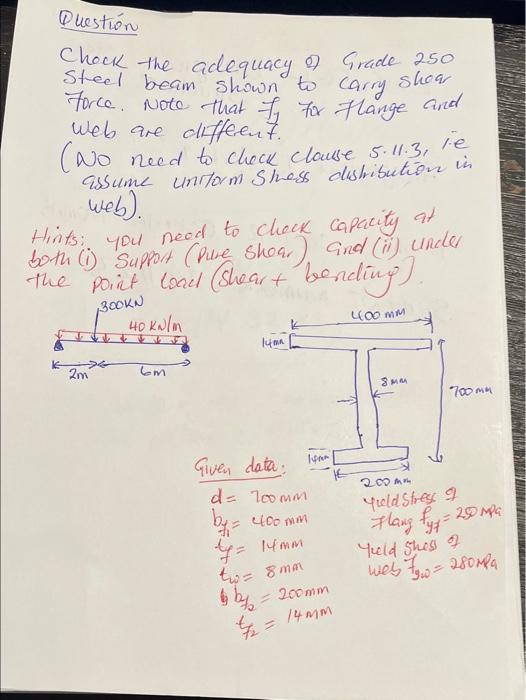 Question
Check the adequacy of Grade 250
Steel beam shown to carry shear
Force. Note that fy for Flange and
Web are different.
(No need to check clause 5.11.3, i.e
assume uniform stress distribution in
web).
Hints: you need to check capacity at
both (i) Support (Pure Shear) and (ii) under
the point load (Shear + bending).
300KN
40 KN/m
2m
6m
400 mm
14mm
8mm
700mm
14mm
200mm
Given data:
d = 700mm
bf1 = 400mm
tf = 14mm
tw = 8mm
bf2 = 200mm
tf2 = 14mm
Yield Stress of
Flang fyf = 250 MPa
Yield Stress of
Web fyw = 280MPa